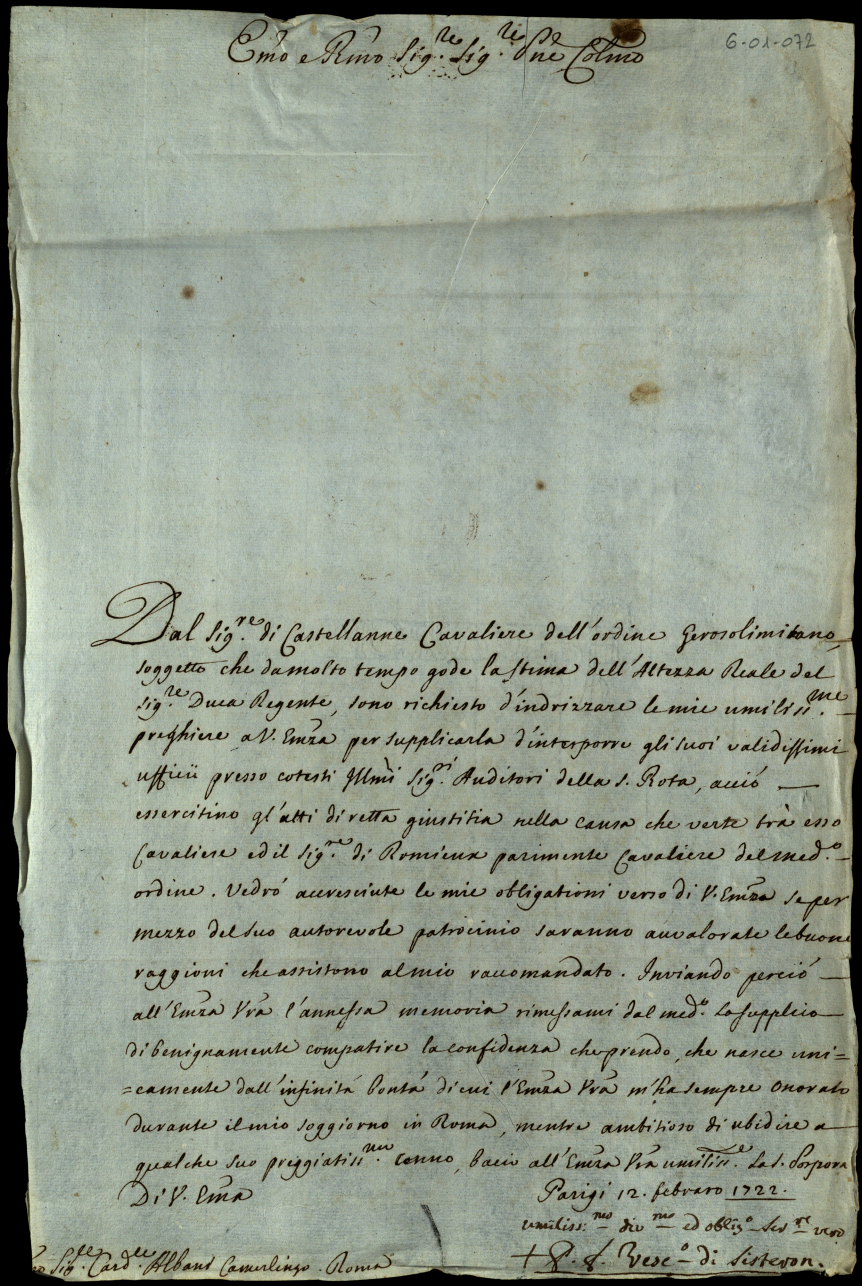 6-01-072
Emo e Rmo Sig.re Sig.re Pne Colmo
Dal Sig.re di Castellanne Cavaliere dell'ordine Gerosolimitano,
soggetto che da molto tempo gode la stima dell'Altezza Reale del
Sig.re Duca Regente, sono richiesto d'indrizzare le mie umiliss.me
preghiere a V. Emza per supplicarla d'interporre gli suoi validissimi
ufficii presso cotesti Illmi Sig.ri Auditori della S. Rota, acciò
essercitino gl'atti di retta giustitia nella causa che verte trà esso
Cavaliere ed il Sig.re di Romieux parimente Cavaliere del med.o
ordine. Vedrò accresciute le mie obligationi verso di V. Emza se per
mezzo del suo autorevole patrocinio saranno avvalorate le buone
raggioni che assistono al mio raccomandato. Inviando perciò
all'Emza Vra l'annessa memoria rimessami dal med.o La supplico
di benignamente compatire la confidenza che prendo, che nasce uni=
=camente dall'infinità bontà di cui l'Emza Vra m'ha sempre onorato
durante il mio soggiorno in Roma, mentre ambitioso di ubidire a
qualche suo preggiatiss.mo cenno, bacio all'Emza Vra umiliss.e La S. Porpora
Di V. Emza
Parigi 12. febraro 1722.
umiliss.mo div.mo ed oblig.o Ser.re vero
+ P. f. Vesc.o di Sisteron.
Sig.re Card.le Albani Camerlingo. Roma